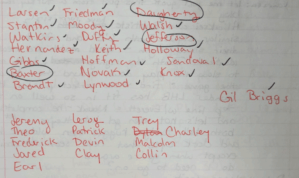 Larsen Friedman Daugherty
Stanton Moody Walsh
Watkins Duffy Jefferson
Hernandez Keith Holloway
Gibbs Hoffman Sandoval
Baxter Novak Knox
Brandt Lynwood
Gil Briggs
Jeremy Leroy Trey
Theo Patrick Charley
Frederick Devin Malcolm
Jared Clay Collin
Earl